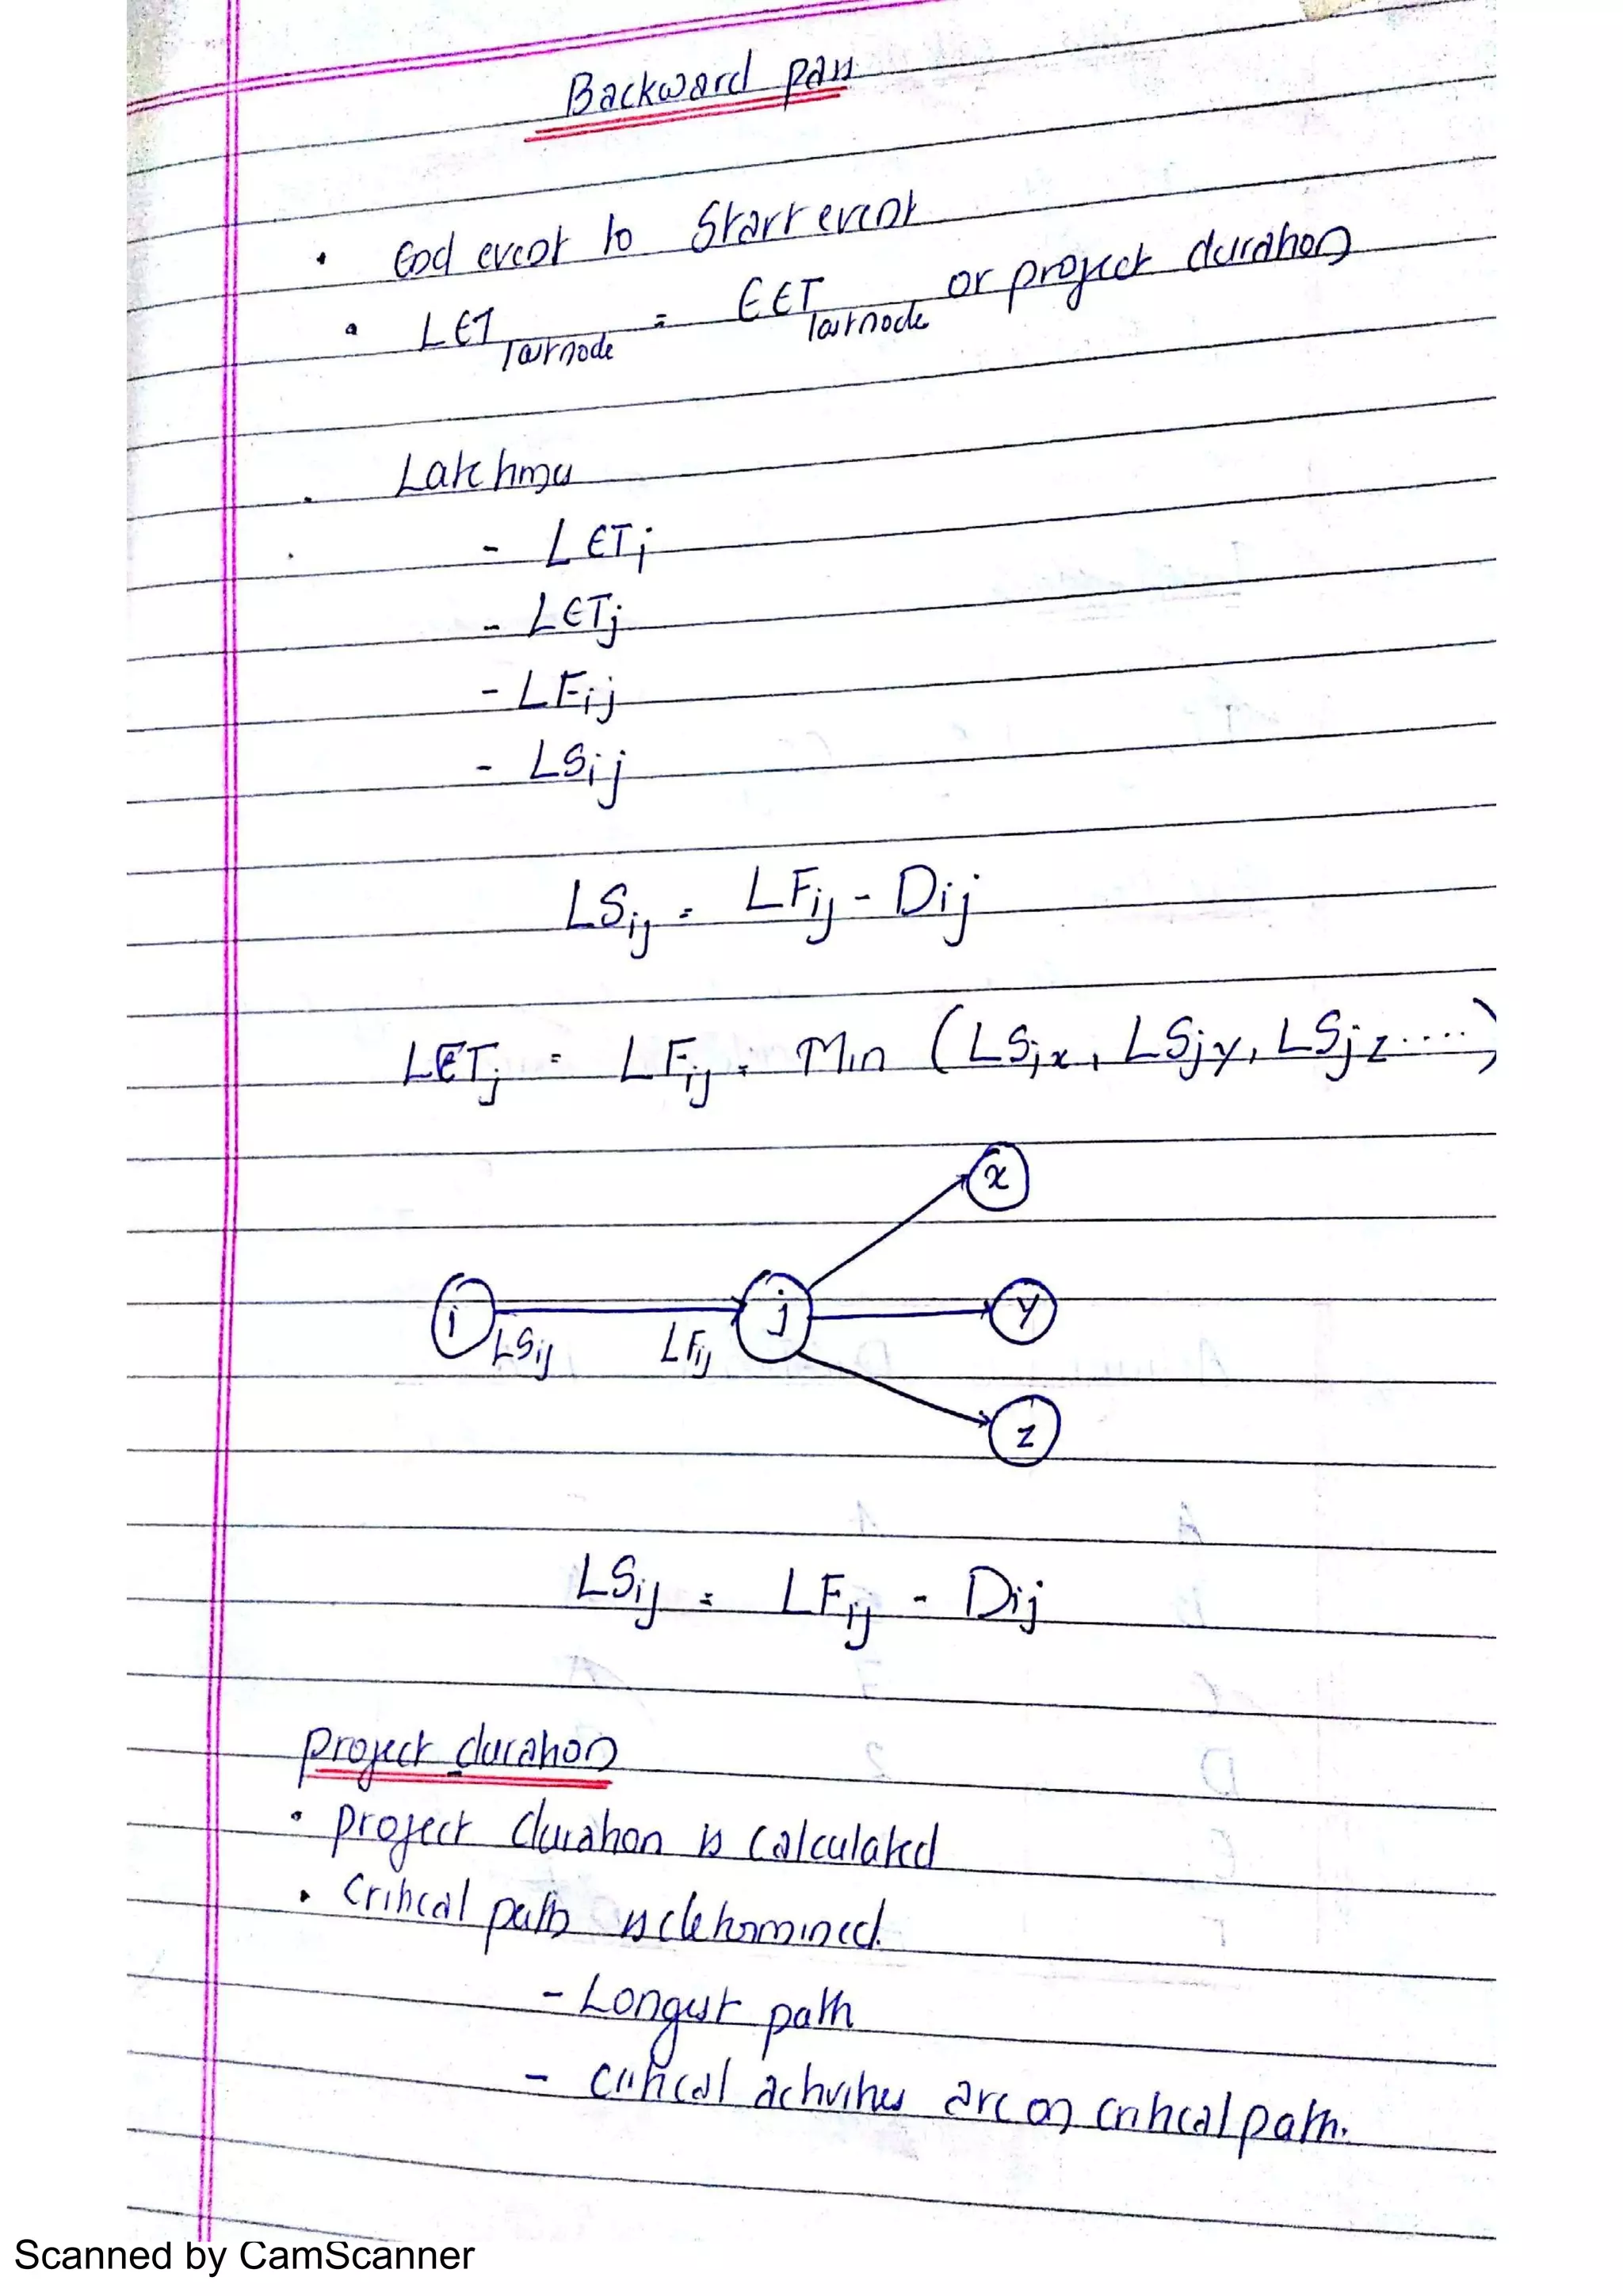 Backward pass
• End event to Start event
• LET last node = EET last node or project duration
• Late times
- LETi
- LETj
- LFij
- LSij
LSij = LFij - Dij
LETj = LFij = Min (LSjx, LSjy, LSjz ....)
x
i LSij LFij j y
z
LSij = LFij - Dij
Project duration
• Project duration is calculated
• Critical path is determined.
- Longest path
- Critical activities are on critical path.
Scanned by CamScanner